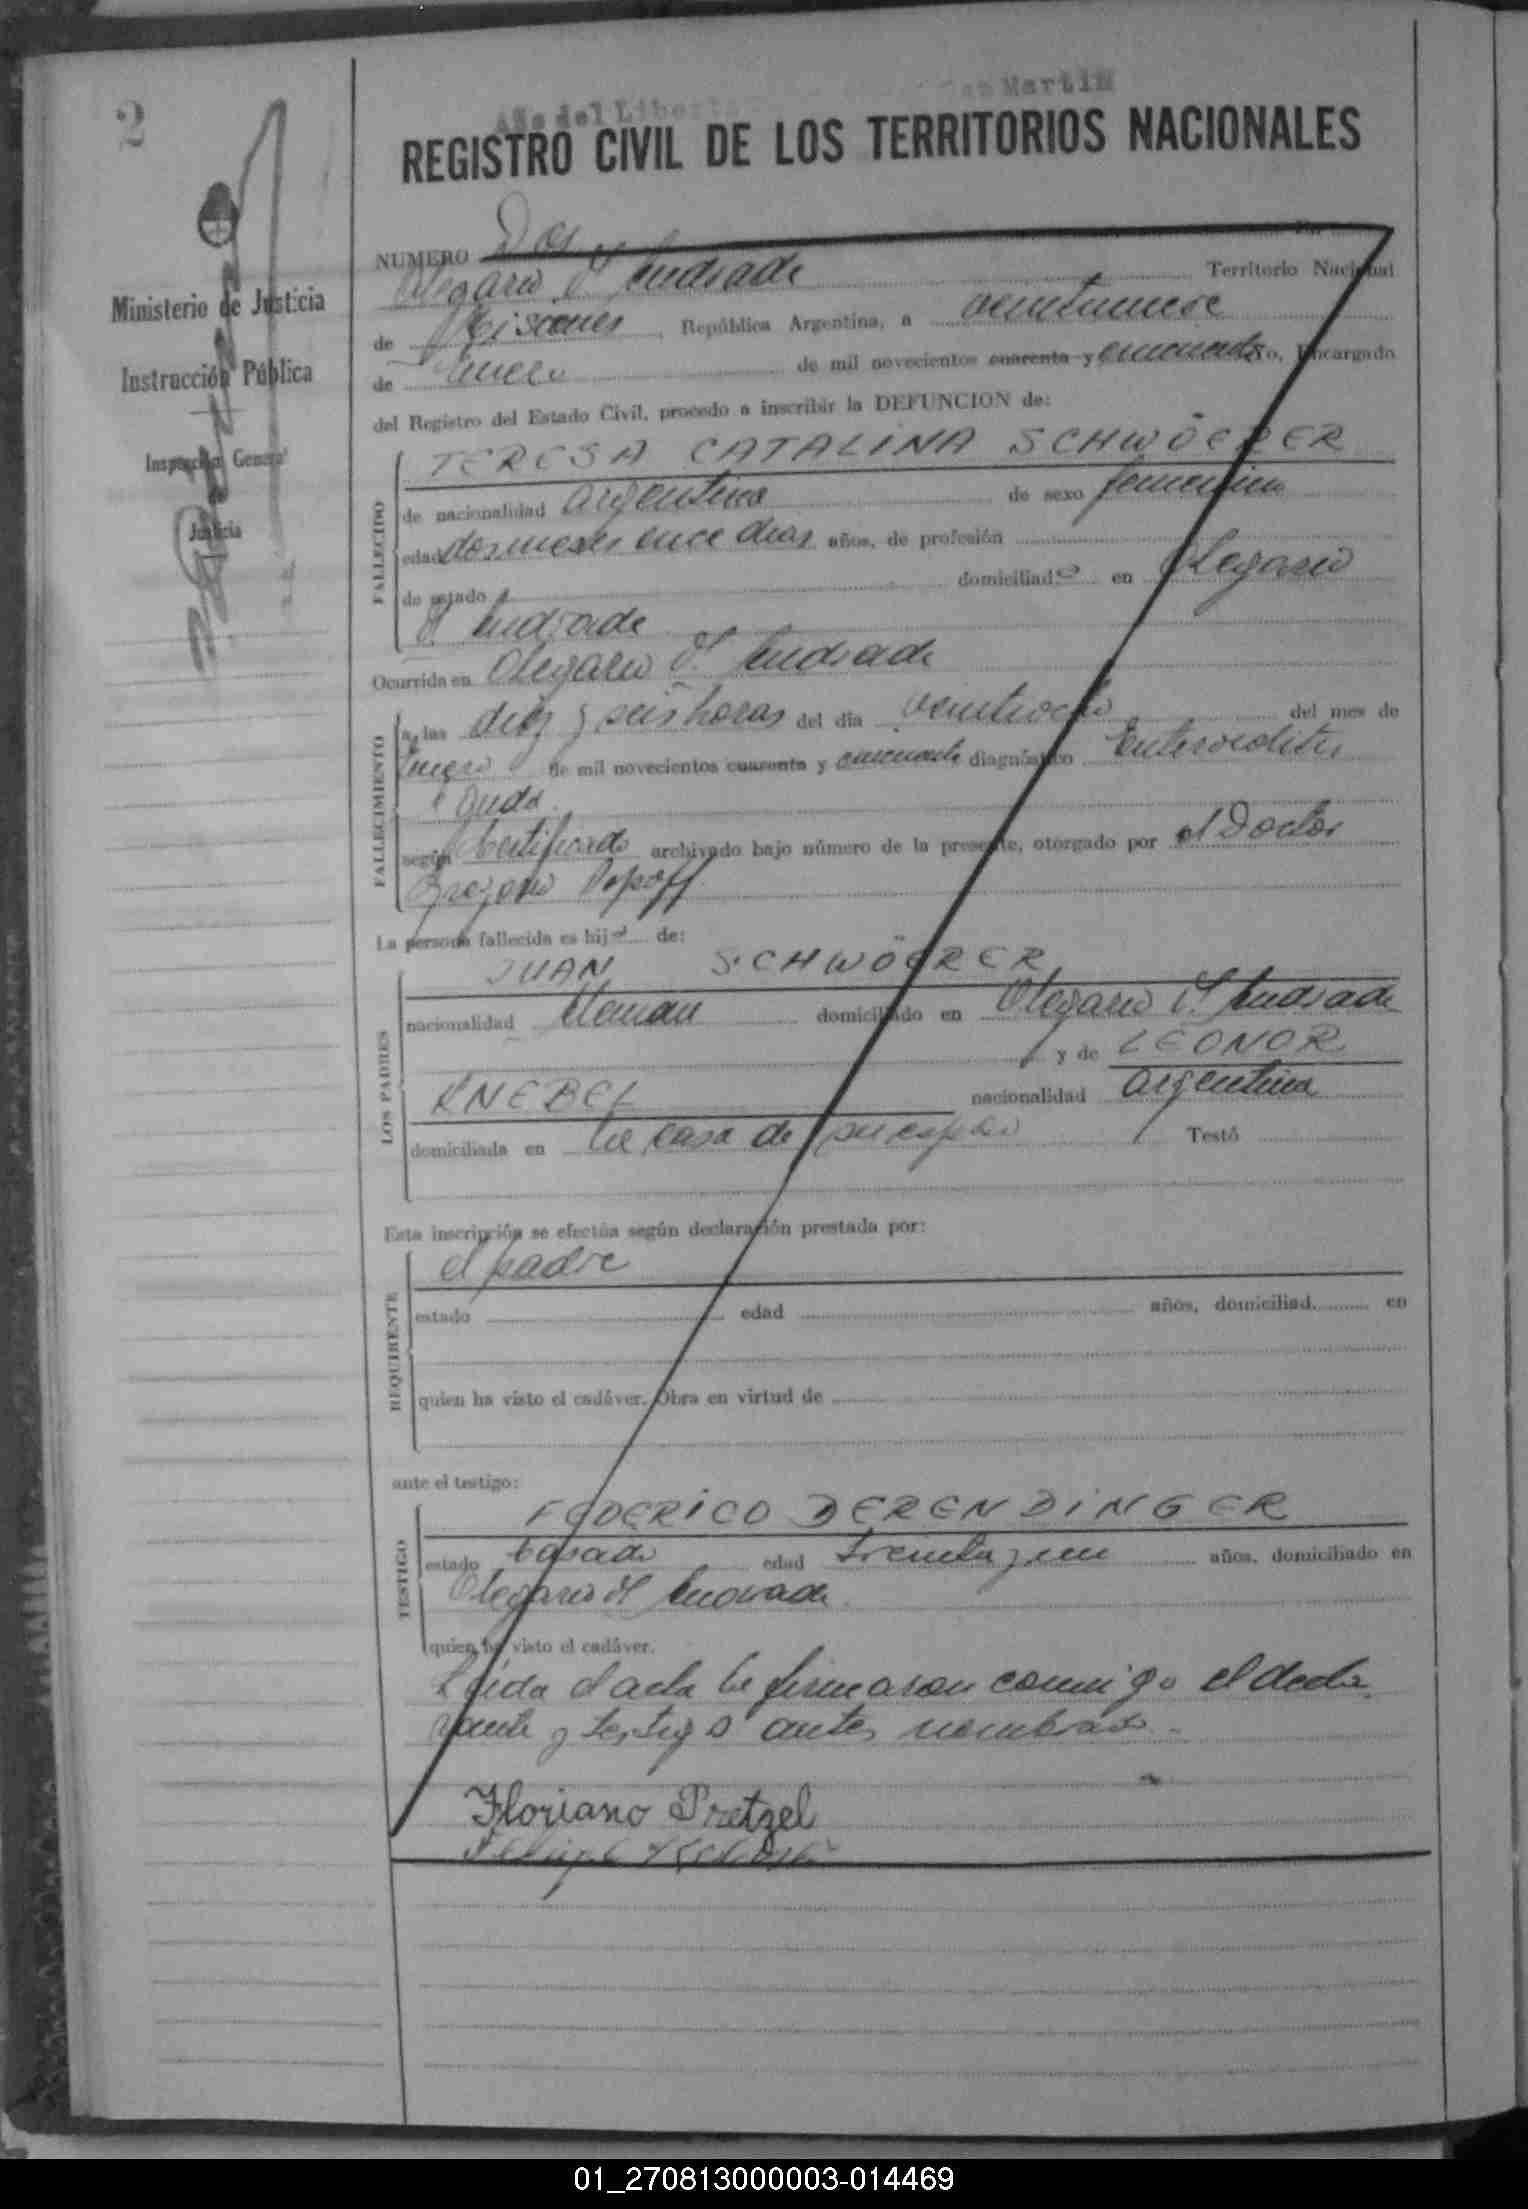 2
Año del Libert San Martin
REGISTRO CIVIL DE LOS TERRITORIOS NACIONALES
Ministerio de Justicia
Instrucción Pública
Inspección General
Justicia
NUMERO Dos En
Olegario V Andrade Territorio Nacional
de Misiones, República Argentina, a veintinueve
de Enero de mil novecientos cuarenta y cincuenta Yo, Encargado
del Registro del Estado Civil, procedo a inscribir la DEFUNCION de:
FALLECIDO
TERESA CATALINA SCHWÖERER
de nacionalidad argentina de sexo femenino
edad dos meses once dias años, de profesión
de estado domiciliada en Olegario
V Andrade
Ocurrida en Olegario V. Andrade
FALLECIMIENTO
a las diez y seis horas del día veintiocho del mes de
Enero de mil novecientos cuarenta y cincuenta diagnóstico Enterocolitis
Aguda
según Certificado archivado bajo número de la presente, otorgado por el Doctor
Popoff
La persona fallecida es hija de:
LOS PADRES
JUAN SCHWÖERER
nacionalidad Aleman domiciliado en Olegario V. Andrade
y de LEONOR
KNEBEL nacionalidad argentina
domiciliada en la casa de su esposo Testó
Esta inscripción se efectúa según declaración prestada por:
REQUIRENTE
el padre
estado edad años, domiciliad en
quien ha visto el cadáver. Obra en virtud de
ante el testigo:
TESTIGO
FEDERICO DERENDINGER
estado Casado edad treinta y un años, domiciliado en
Olegario V Andrade
quien ha visto el cadáver.
Leida el acta la firmaron conmigo el decla
rante y testigo antes nombrado.-
Floriano Pretzel
01_270813000003-014469